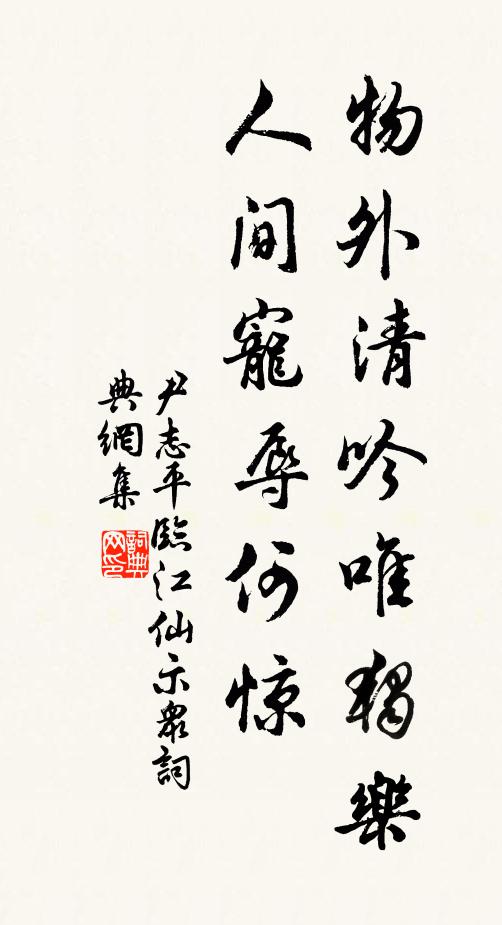 物外清吟唯獨樂
人间寵辱何惊
尹志平臨江仙示眾詞
典網集
詞典网印